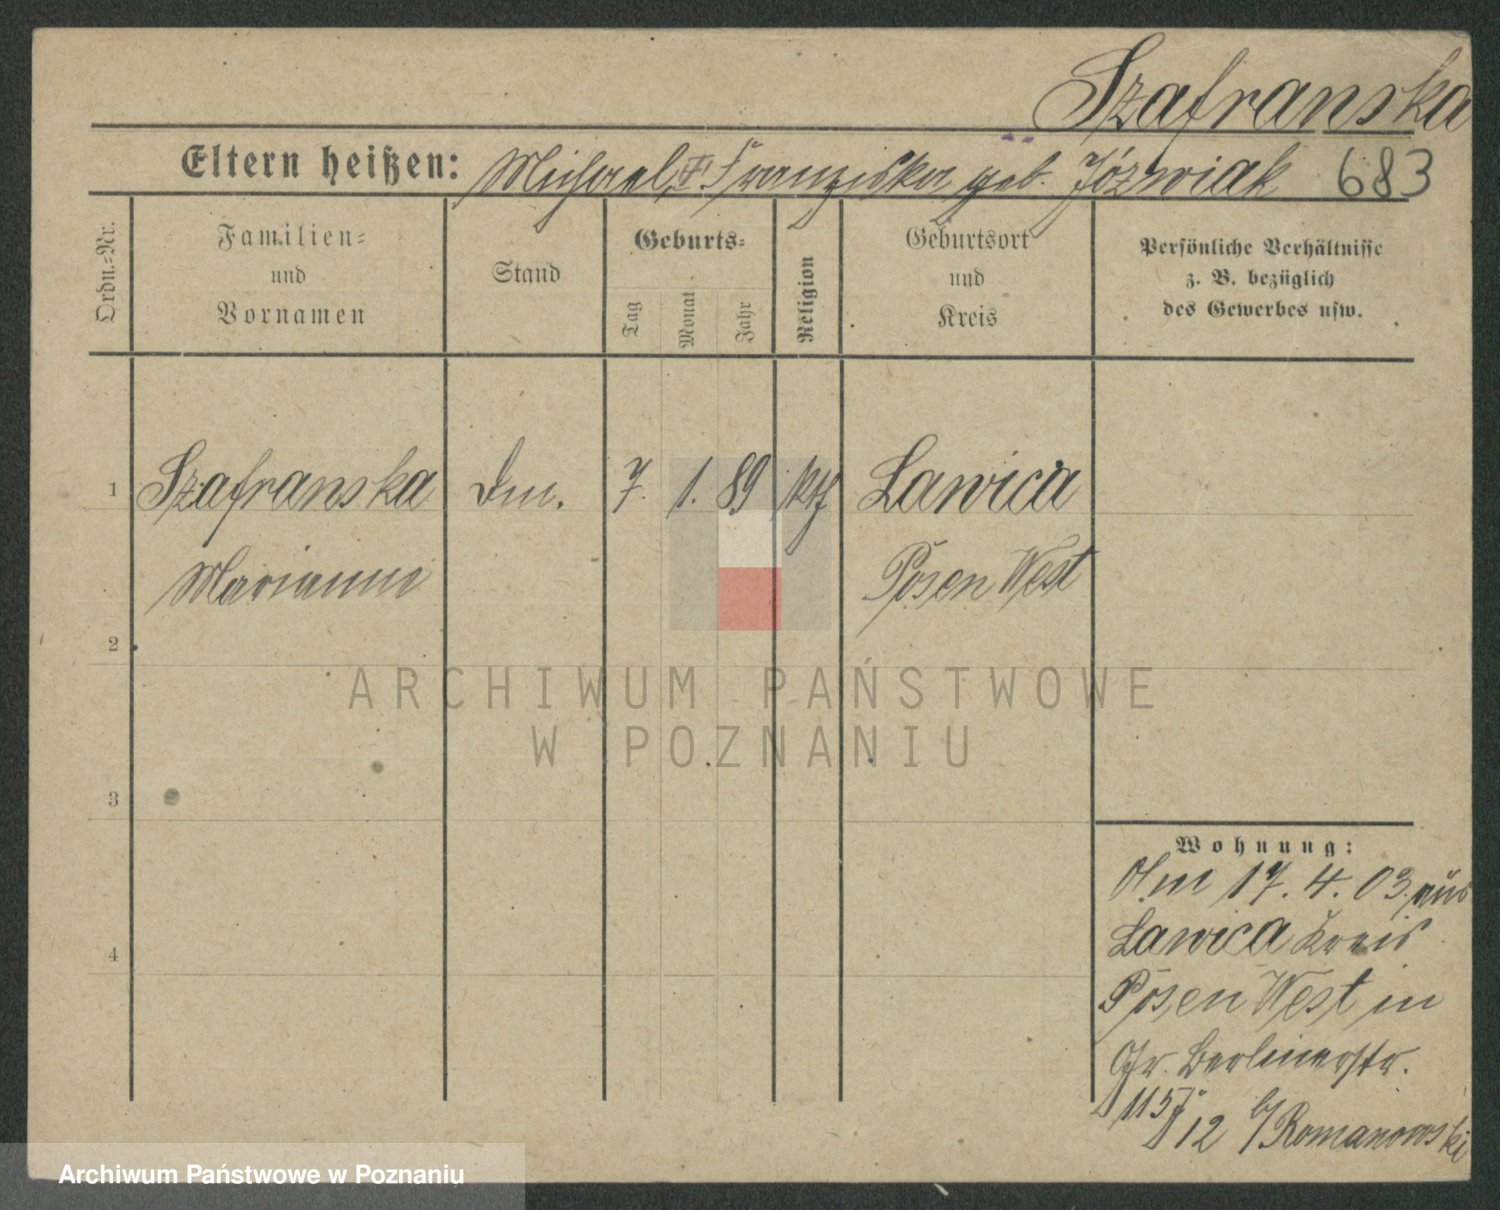 Szafranska
Eltern heißen: Michael, Franziska geb. Józwiak 683
Ordn.-Nr.
Familien-
und
Vornamen
Stand
Geburts-
Tag
Monat
Jahr
Religion
Geburtsort
und
Kreis
Persönliche Verhältnisse
z. B. bezüglich
des Gewerbes usw.
1 Szafranska 7. 1. 89 kth Lawica
Marianne Posen West
2
ARCHIWUM PAŃSTWOWE
W POZNANIU
3
Wohnung:
Am 17. 4. 03. aus
Lawica Kreis
4
Posen West in
Gr. Berlinerstr.
115 12 b/ Romanowski
Archiwum Państwowe w Poznaniu